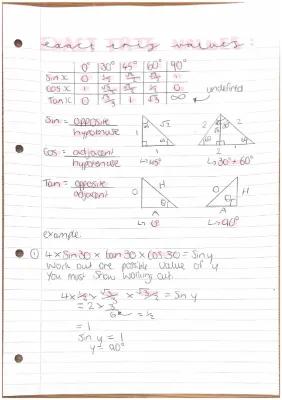 exact trig values:
0° 30° 45° 60° 90°
Sin x 0 1/2 √2/2 √3/2 1
Cos x 1 √3/2 √2/2 1/2 0
Tan x 0 √3/3 1 √3 ∞
undefined
Sin = opposite
hypotenuse
1 √2 1
2 2 1
Cos = adjacent
hypotenuse
↳45° ↳30°+60°
Tan = opposite
adjacent
O H O H
A A
↳0 ↳90°
example:
① 4 × Sin 30 × tan 30 × Cos 30 = Sin y
Work out one possible value of y
You must show working out.
4 × 1/2 × √3/3 × √3/2 = Sin y
= 2 × 3/6 = 1/2
= 1
Sin y = 1
y = 90°